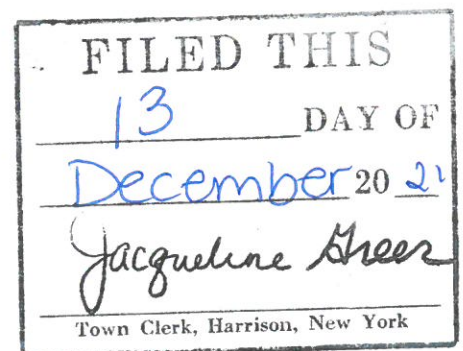 FILED THIS
13 DAY OF
December 20 21
Jacqueline Greer
Town Clerk, Harrison, New York